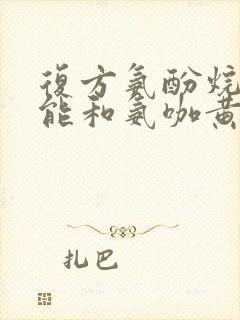 復方氨酚烷
能和氨咖黄
扎巴